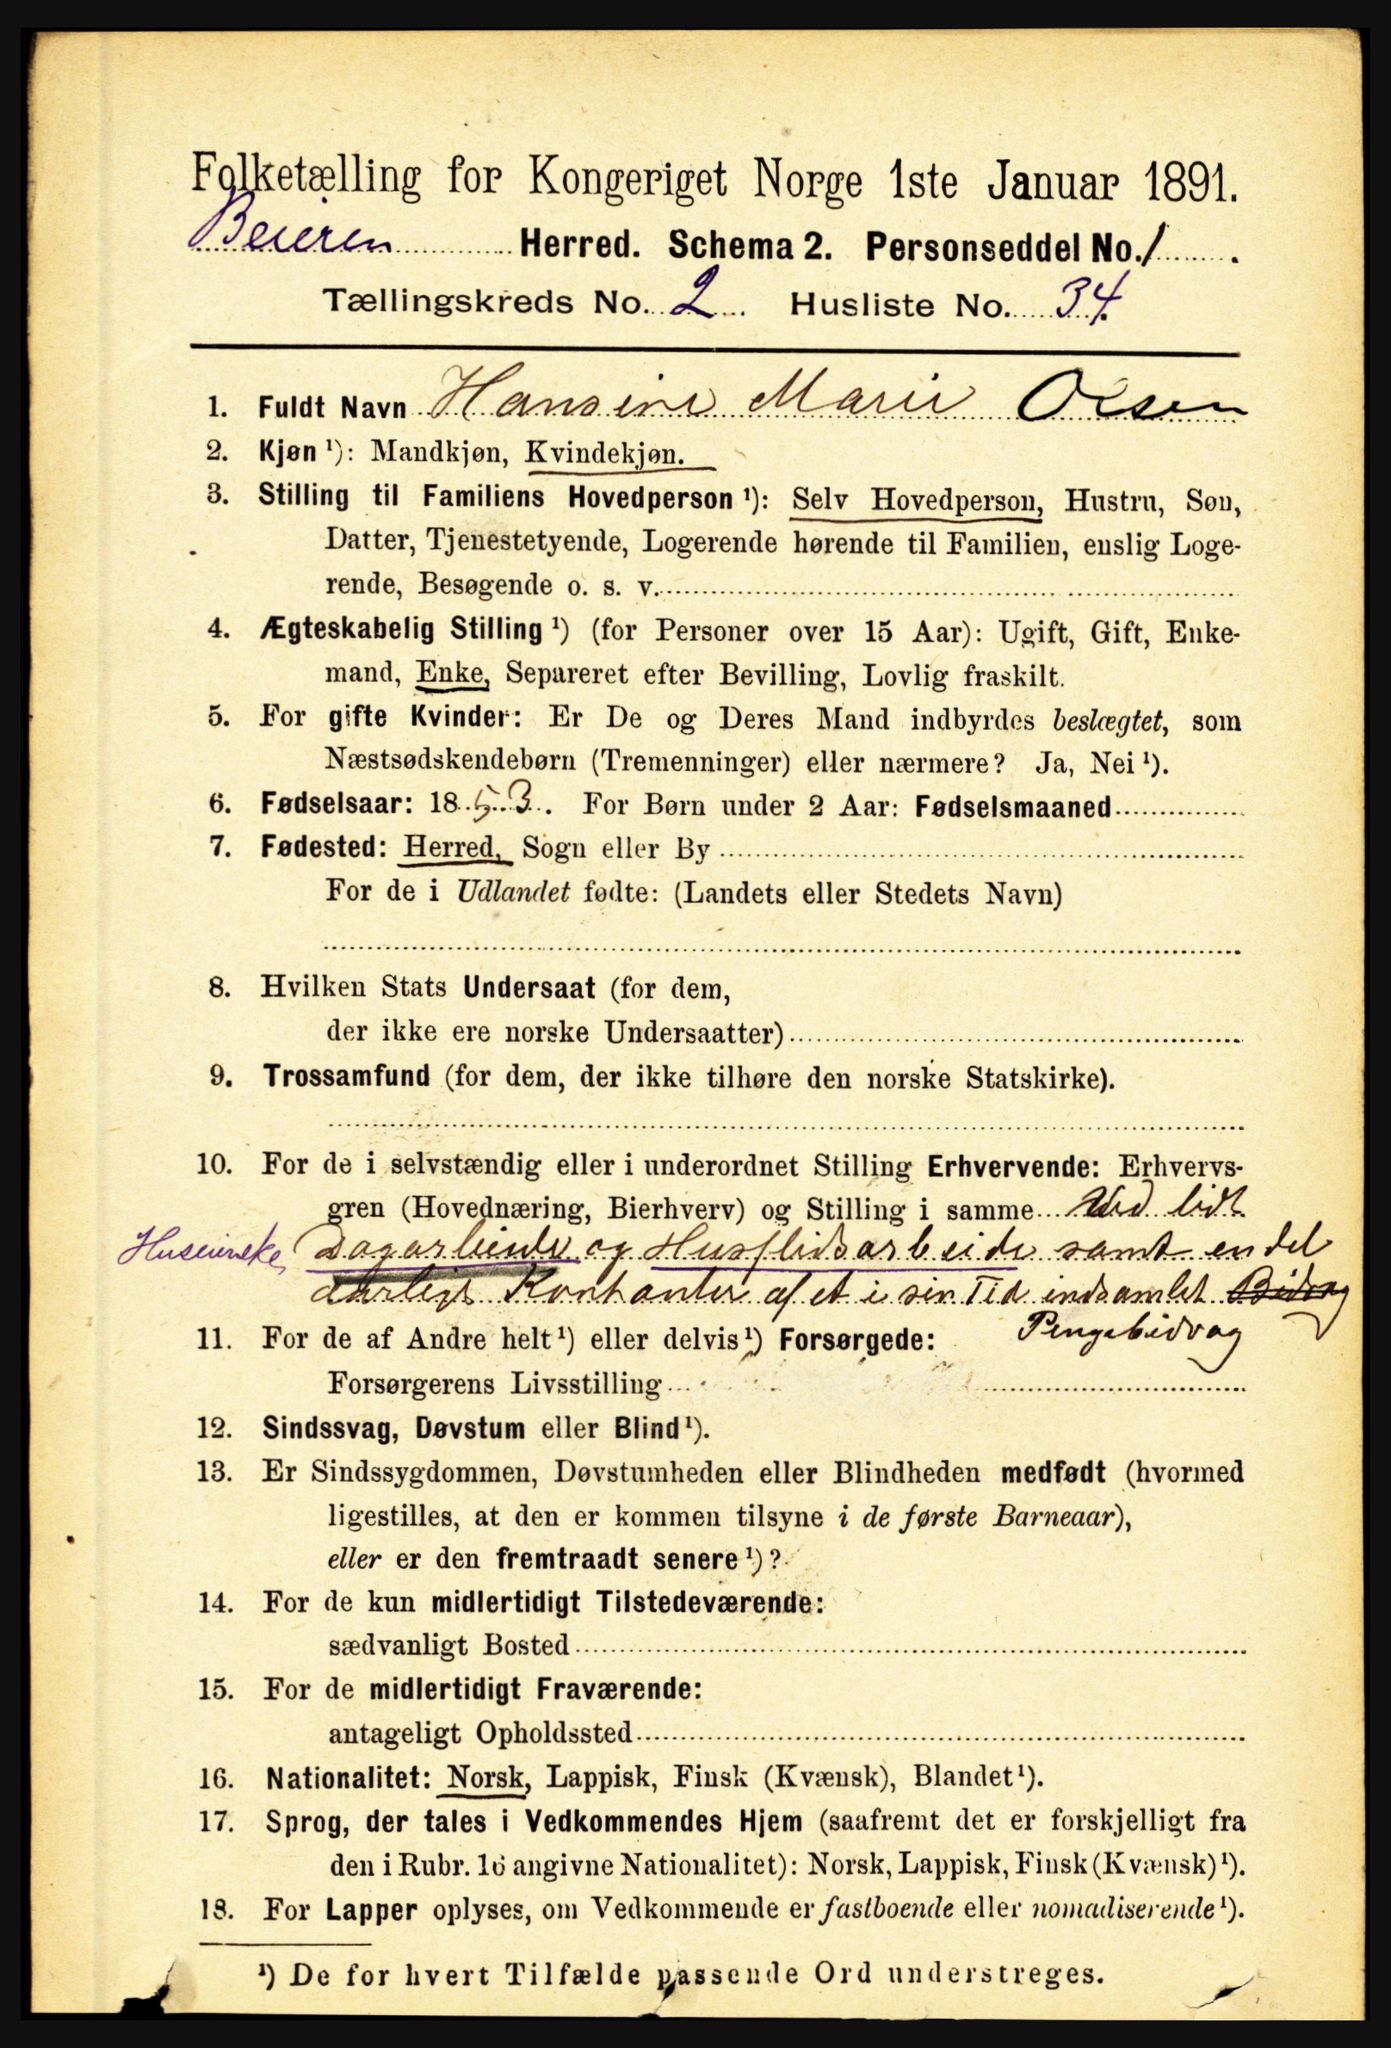 Folketælling for Kongeriget Norge 1ste Januar 1891.
Beieren Herred. Schema 2. Personseddel No. 1.
Tællingskreds No. 2. Husliste No. 34.
1. Fuldt Navn Hansine Marie Olsen
2. Kjøn ¹): Mandkjøn, Kvindekjøn.
3. Stilling til Familiens Hovedperson ¹): Selv Hovedperson, Hustru, Søn,
Datter, Tjenestetyende, Logerende hørende til Familien, enslig Loge-
rende, Besøgende o. s. v.
4. Ægteskabelig Stilling ¹) (for Personer over 15 Aar): Ugift, Gift, Enke-
mand, Enke, Separeret efter Bevilling, Lovlig fraskilt.
5. For gifte Kvinder: Er De og Deres Mand indbyrdes beslægtet, som
Næstsødskendebørn (Tremenninger) eller nærmere? Ja, Nei ¹).
6. Fødselsaar: 1853. For Børn under 2 Aar: Fødselsmaaned
7. Fødested: Herred, Sogn eller By
For de i Udlandet fødte: (Landets eller Stedets Navn)
8. Hvilken Stats Undersaat (for dem,
der ikke ere norske Undersaatter)
9. Trossamfund (for dem, der ikke tilhøre den norske Statskirke).
10. For de i selvstændig eller i underordnet Stilling Erhvervende: Erhvervs-
gren (Hovednæring, Bierhverv) og Stilling i samme Ved lidt
Huseierske Dagarbeide og Husflidsarbeide samt en del
aarligt Kontanter af et i sin Tid indsamlet Bidrag
Pengebidrag
11. For de af Andre helt ¹) eller delvis ¹) Forsørgede:
Forsørgerens Livsstilling
12. Sindssvag, Døvstum eller Blind ¹).
13. Er Sindssygdommen, Døvstumheden eller Blindheden medfødt (hvormed
ligestilles, at den er kommen tilsyne i de første Barneaar),
eller er den fremtraadt senere ¹)?
14. For de kun midlertidigt Tilstedeværende:
sædvanligt Bosted
15. For de midlertidigt Fraværende:
antageligt Opholdssted
16. Nationalitet: Norsk, Lappisk, Finsk (Kvænsk), Blandet ¹).
17. Sprog, der tales i Vedkommendes Hjem (saafremt det er forskjelligt fra
den i Rubr. 16 angivne Nationalitet): Norsk, Lappisk, Finsk (Kvænsk) ¹).
18. For Lapper oplyses, om Vedkommende er fastboende eller nomadiserende ¹).
¹) De for hvert Tilfælde passende Ord understreges.